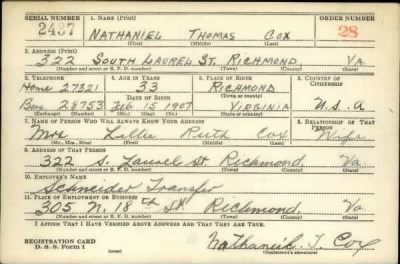 SERIAL NUMBER 1. NAME (Print) ORDER NUMBER
2437 NATHANIEL THOMAS COX 28
(First) (Middle) (Last)
2. ADDRESS (Print)
322 SOUTH LAUREL ST. RICHMOND VA.
(Number and street or R. F. D. number) (Town) (County) (State)
3. TELEPHONE 4. AGE IN YEARS 5. PLACE OF BIRTH 6. COUNTRY OF CITIZENSHIP
Home 27321 33 RICHMOND
DATE OF BIRTH (Town or county)
Bus. 28753 Feb 15 1907 VIRGINIA U.S.A
(Exchange) (Number) (Mo.) (Day) (Yr.) (State or country)
7. NAME OF PERSON WHO WILL ALWAYS KNOW YOUR ADDRESS 8. RELATIONSHIP OF THAT PERSON
Mrs Lillie Ruth Cox Wife
(Mr., Mrs., Miss) (First) (Middle) (Last)
9. ADDRESS OF THAT PERSON
322 S. Laurel St Richmond, Va
(Number and street or R. F. D. number) (Town) (County) (State)
10. EMPLOYER'S NAME
Schneider Transfer
11. PLACE OF EMPLOYMENT OR BUSINESS
305 N. 18th St. Richmond, Va.
(Number and street or R. F. D. number) (Town) (County) (State)
I AFFIRM THAT I HAVE VERIFIED ABOVE ANSWERS AND THAT THEY ARE TRUE.
REGISTRATION CARD
D. S. S. Form 1 Nathaniel T. Cox
(Registrant's signature)